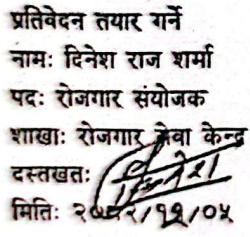 प्रतिवेदन तयार गर्ने
नामः दिनेश राज शर्मा
पदः रोजगार संयोजक
शाखाः रोजगार सेवा केन्द्र
दस्तखतः
मितिः